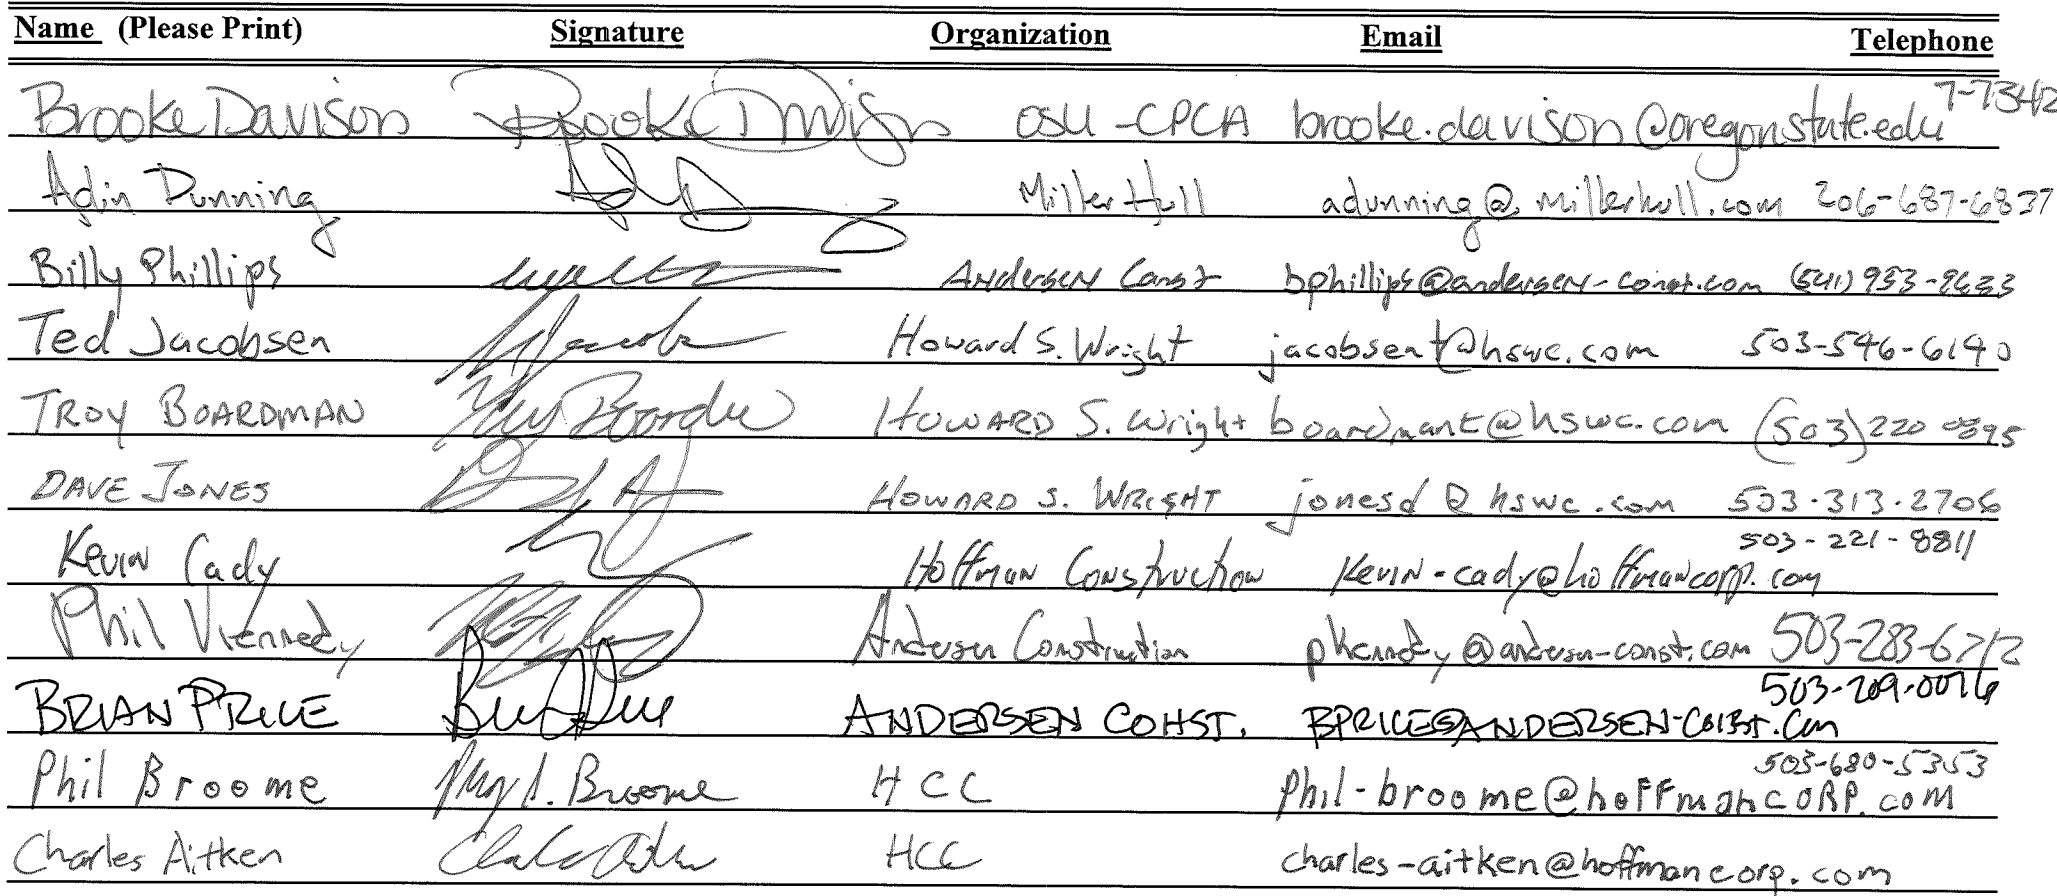 Name (Please Print) Signature Organization Email Telephone
Brooke Davison Brooke Davison OSU-CPCA brooke.davison@oregonstate.edu 7-7342
Adin Dunning Miller Hull adunning@millerhull.com 206-687-6837
Billy Phillips Andersen Const bphillips@andersen-const.com (541) 953-9633
Ted Jacobsen Howard S. Wright jacobsent@hswc.com 503-546-6190
TROY BOARDMAN HOWARD S. Wright boardmant@hswc.com (503) 220 0895
DAVE JONES HOWARD S. WRIGHT jonesd@hswc.com 503-313-2706
503-221-8811
Kevin Cady Hoffman Construction Kevin-cady@hoffmancorp.com
Phil Kennedy Andersen Construction pkennedy@andersen-const.com 503-283-6712
503-209-0076
BRIAN PRICE ANDERSEN CONST. BPRICE@ANDERSEN-CONST.Com
503-680-5353
Phil Broome Broome HCC Phil-broome@hoffmanCORP.com
Charles Aitken HCC charles-aitken@hoffmancorp.com